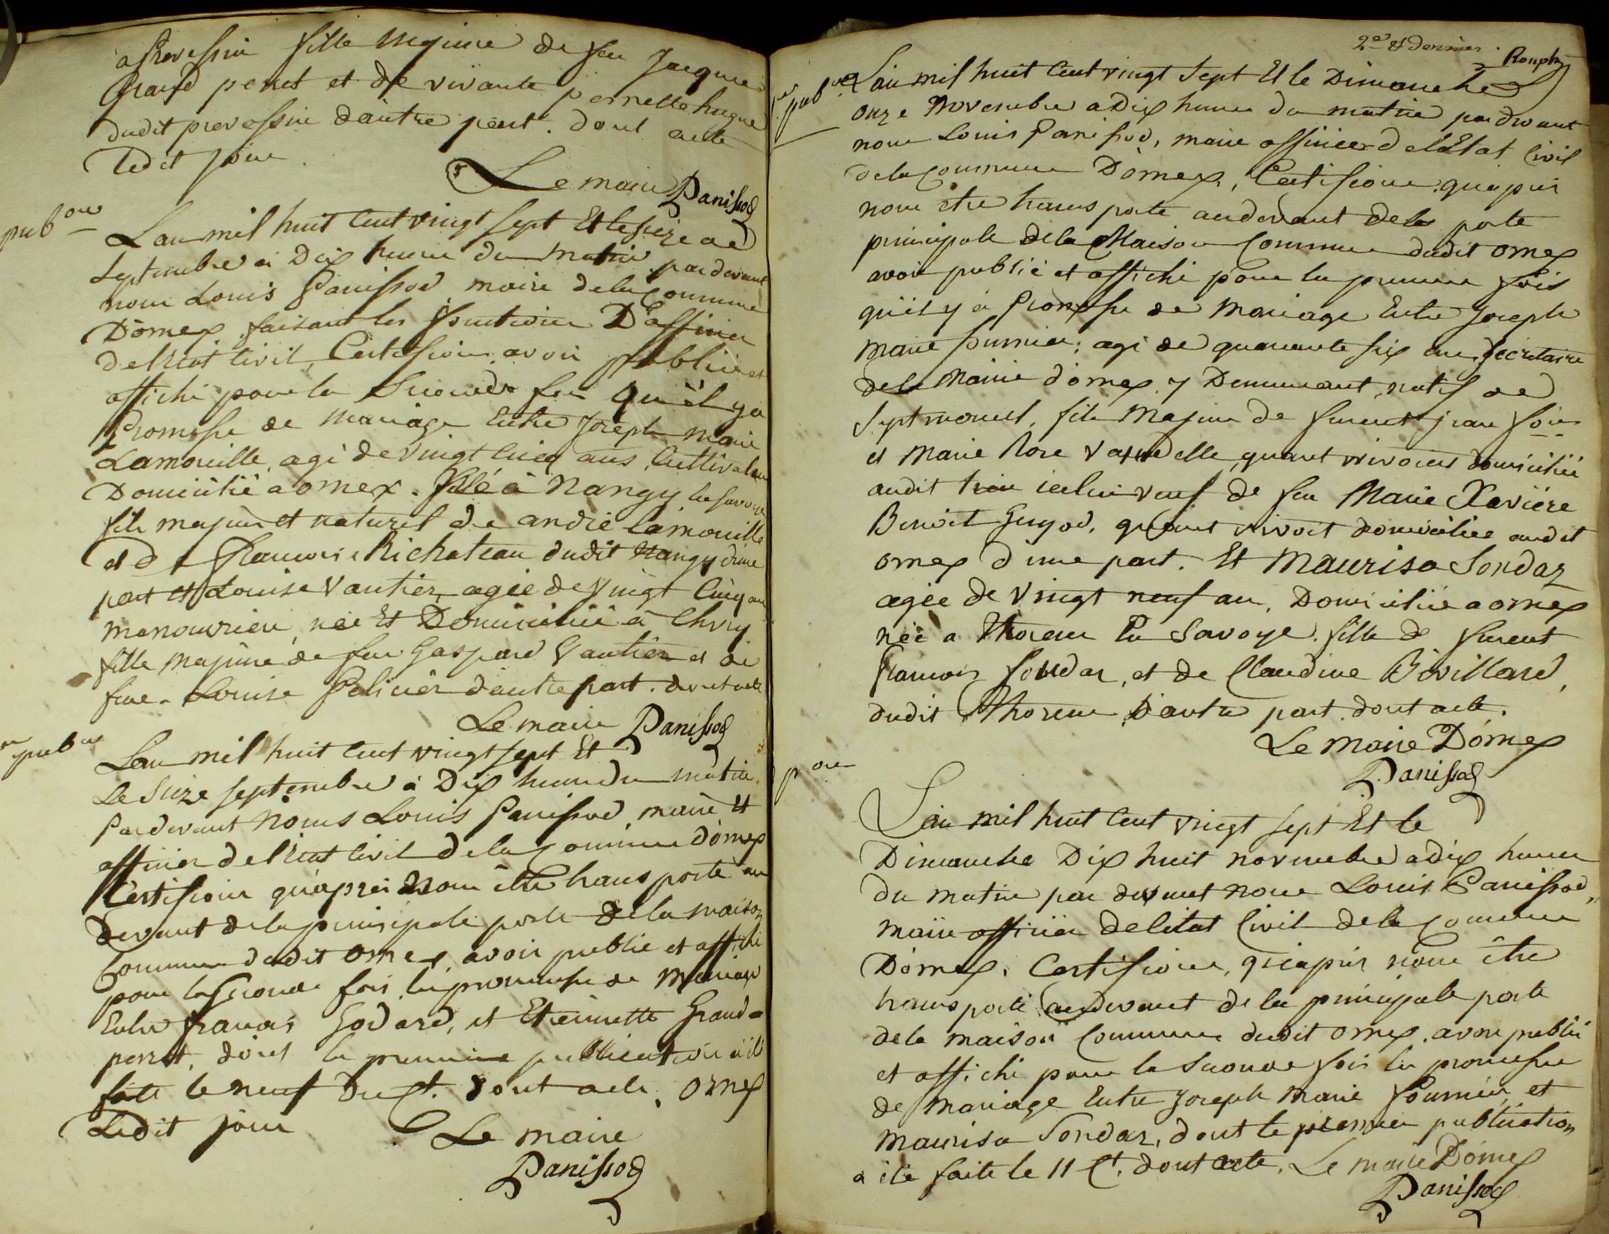 a Prevessin fille majeure de feu Jacques
Grand perret et de vivante pernelle hugue
dudit prevessin d'autre part. dont acte
ledit jour
Le maire Panissod
pub.on
L'an mil huit Cent vingt sept Et le seize de
Septembre à Dix heures du matin pardevant
nous Louis Panissod maire de la Commune
D'ornex faisant les fonctions D'officier
de l'Etat Civil, Certifions avoir publié et
affiché pour la Seconde fois qu'il y a
promesse de mariage Entre Joseph marie
Lamouille, agé de vingt Cinq ans, Cultivateur
Domicilié a ornex. né à Nangy en Savoye
fils majeur et naturel de andré Lamouille
et de françoise Richateau dudit Nangy d'une
part et Louise Vautier, agée de Vingt Cinq ans
manouvriere, née Et Domiciliée à Chevry
fille majeure de feu Gaspard Vautier et de
feue Louise Pelicier d'autre part. dont acte
Le maire Panissod
pub.on
L'an mil huit Cent vingt sept Et
Le Seize septembre à Dix heures du matin
Pardevant Nous Louis Panissod, maire Et
officier de l'Etat Civil de la Commune D'ornex
Certifions qu'après Nous être transporté au
Devant de la principale porte de la maison
Commune dudit ornex, avoir publié et affiché
pour la Seconde fois la promesse de mariage
Entre françois Godard, et Etiennette Grand=
perret, dont la premiere publication a été
faite le neuf du Ct. dont acte. ornex
Ledit jour
Le maire
Panissod
2e et dernier
pub.on
L'an mil huit Cent vingt sept Et le Dimanche
onze Novembre a Dix heures du matin pardevant
nous Louis Panissod, maire officier de l'Etat Civil
de la Commune D'ornex, Certifions qu'apres
nous être transporté audevant de la porte
principale de la Maison Commune dudit ornex
avoir publié et affiché pour la premiere fois
qu'il y a Promesse de Mariage Entre Joseph
Marie fournier, agé de quarante six ans, Secretaire
de la Mairie d'ornex y Demeurant, natif de
Septmoncel, fils Majeur de furent jean
et Marie Rose quant vivoient domiciliés
audit lieu icelui veuf de feu Marie Xaviére
Benoit Guyod, quant vivoit domiciliée audit
ornex d'une part. Et Maurisa Sondaz
agée de Vingt neuf ans, Domiciliée a ornex
née a Thorens En Savoye. fille de furent
françois Sondaz, et de Claudine Bovillard,
dudit Thorens D'autre part. dont acte.
Le Maire D'ornex
Panissod
p.on
L'an mil huit Cent vingt sept Et le
Dimanche Dix huit novembre a dix heures
du matin par devant nous Louis Panissod,
maire officier de l'état Civil de la Commune
D'ornex. Certifions, qu'après nous être
transporté audevant de la principale porte
de la maison Commune dudit ornex. avoir publié
et affiché pour la Seconde fois la promesse
de Mariage Entre Joseph Marie Fournier, et
Maurisa Sondaz, dont la premier publication
a été faite le 11 Ct. dont acte. Le maire D'ornex
Panissod